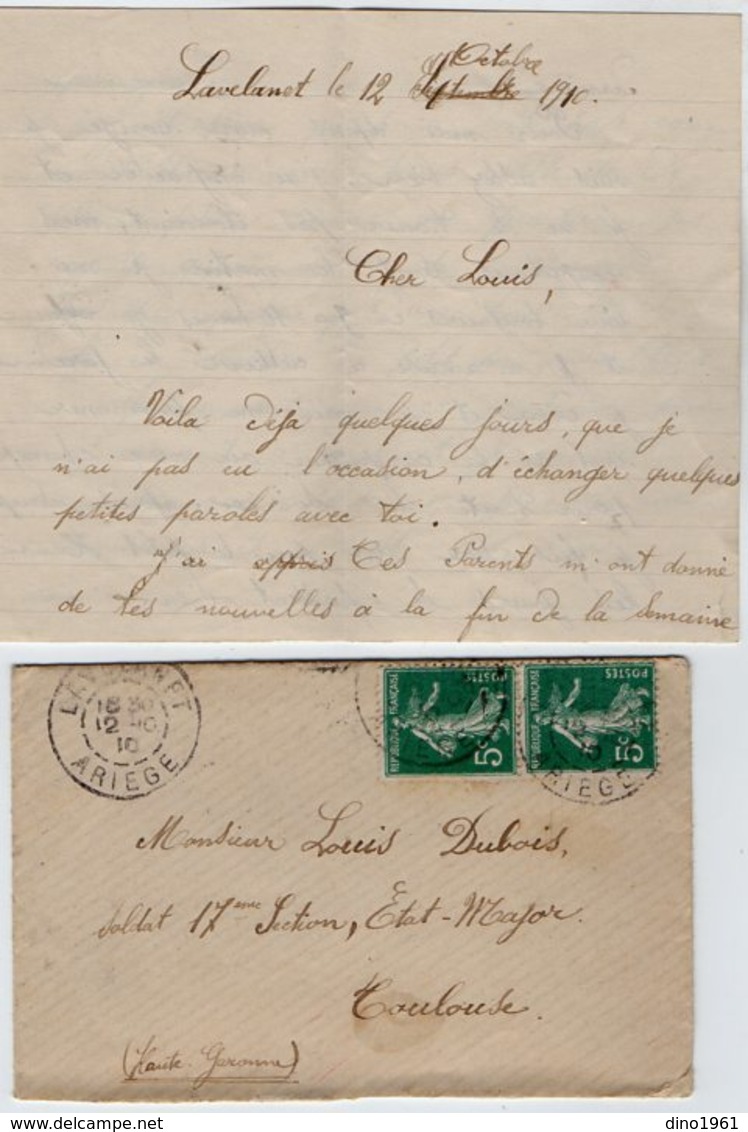 Lavelanet le 12 Septembre Octobre 1910.
Cher Louis,
Voila déja quelques jours, que je
n'ai pas eu l'occasion, d'échanger quelques
petites paroles avec toi.
J'ai appris Tes Parents m'ont donné
de tes nouvelles à la fin de la Semaine
LAVELANET
12 -10
10
ARIEGE
REPUBLIQUE FRANÇAISE
POSTES
5c
REPUBLIQUE FRANÇAISE
POSTES
5c
ARIEGE
Monsieur Louis Dubois,
Soldat 17ème Section, État-Major.
Toulouse.
(Haute-Garonne)
delcampe.net
dino1961